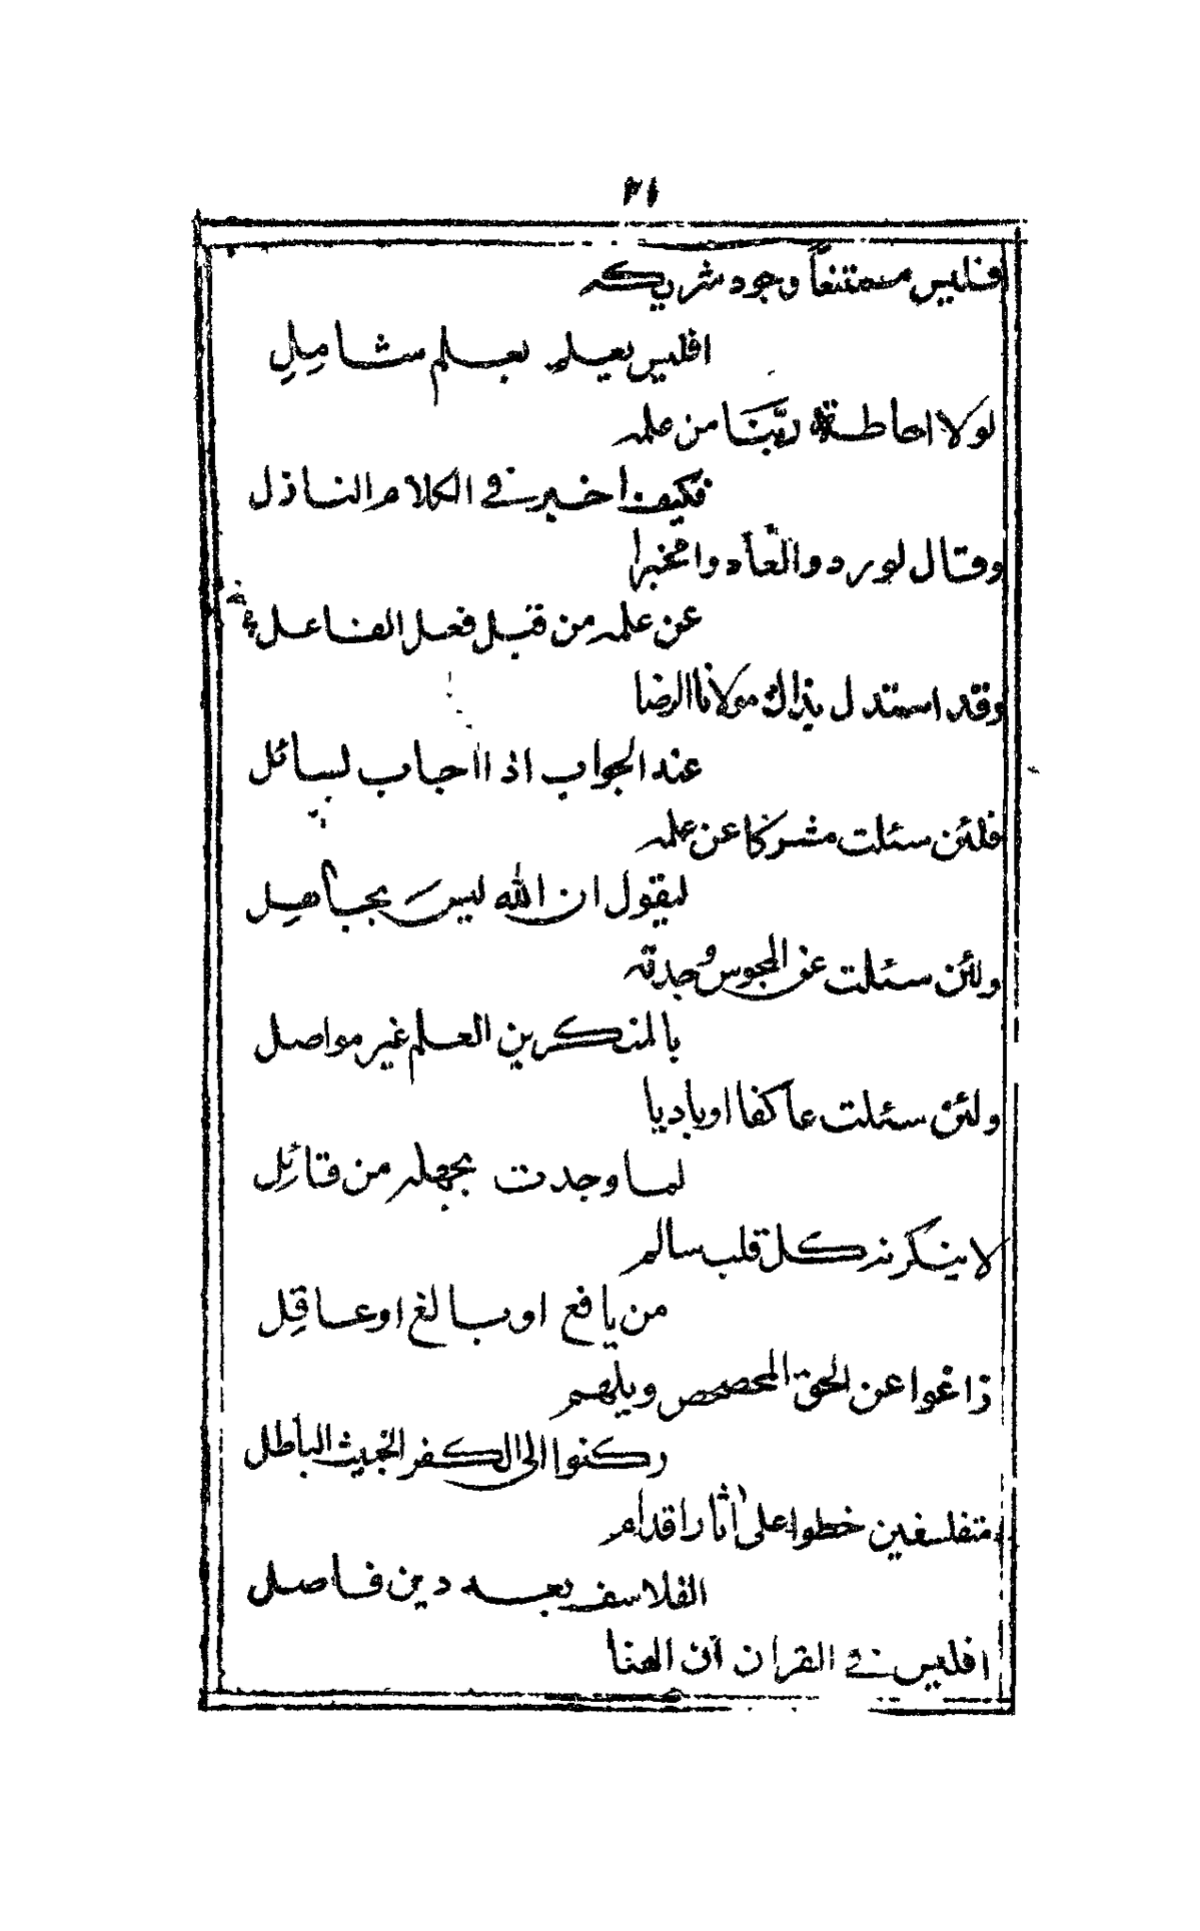 ٢١
فليس ممتنعاً وجود شريكه
افليس يعلم بعلم شامِلِ
لولا احاطة ربّنا من علمه
فكيف اخبر في الكلام النازل
وقال لو ردوا لعادوا مخبرا
عن علمه من قبل فعل الفاعل
وقد استدل بذاك مولانا الرضا
عند الجواب اذ ااجاب لسائل
فلئن سئلت مشركا عن علمه
ليقول ان الله ليس بجاهل
ولئن سئلت عن المجوس وجدته
بالمنكرين العلم غير مواصل
ولئن سئلت عاكفا اوباديا
لما وجدت بجهله من قائل
لا ينكرنه كل قلب سالم
من يافع اوبالغ اوعاقِل
زاغوا عن الحق المحصحص ويلهم
ركنوا الى الكفر الخبيث الباطل
متفلسفين خطوا على اثار اقدام
الفلاسف بعد دين فاصل
افليس في القران ان الهنا